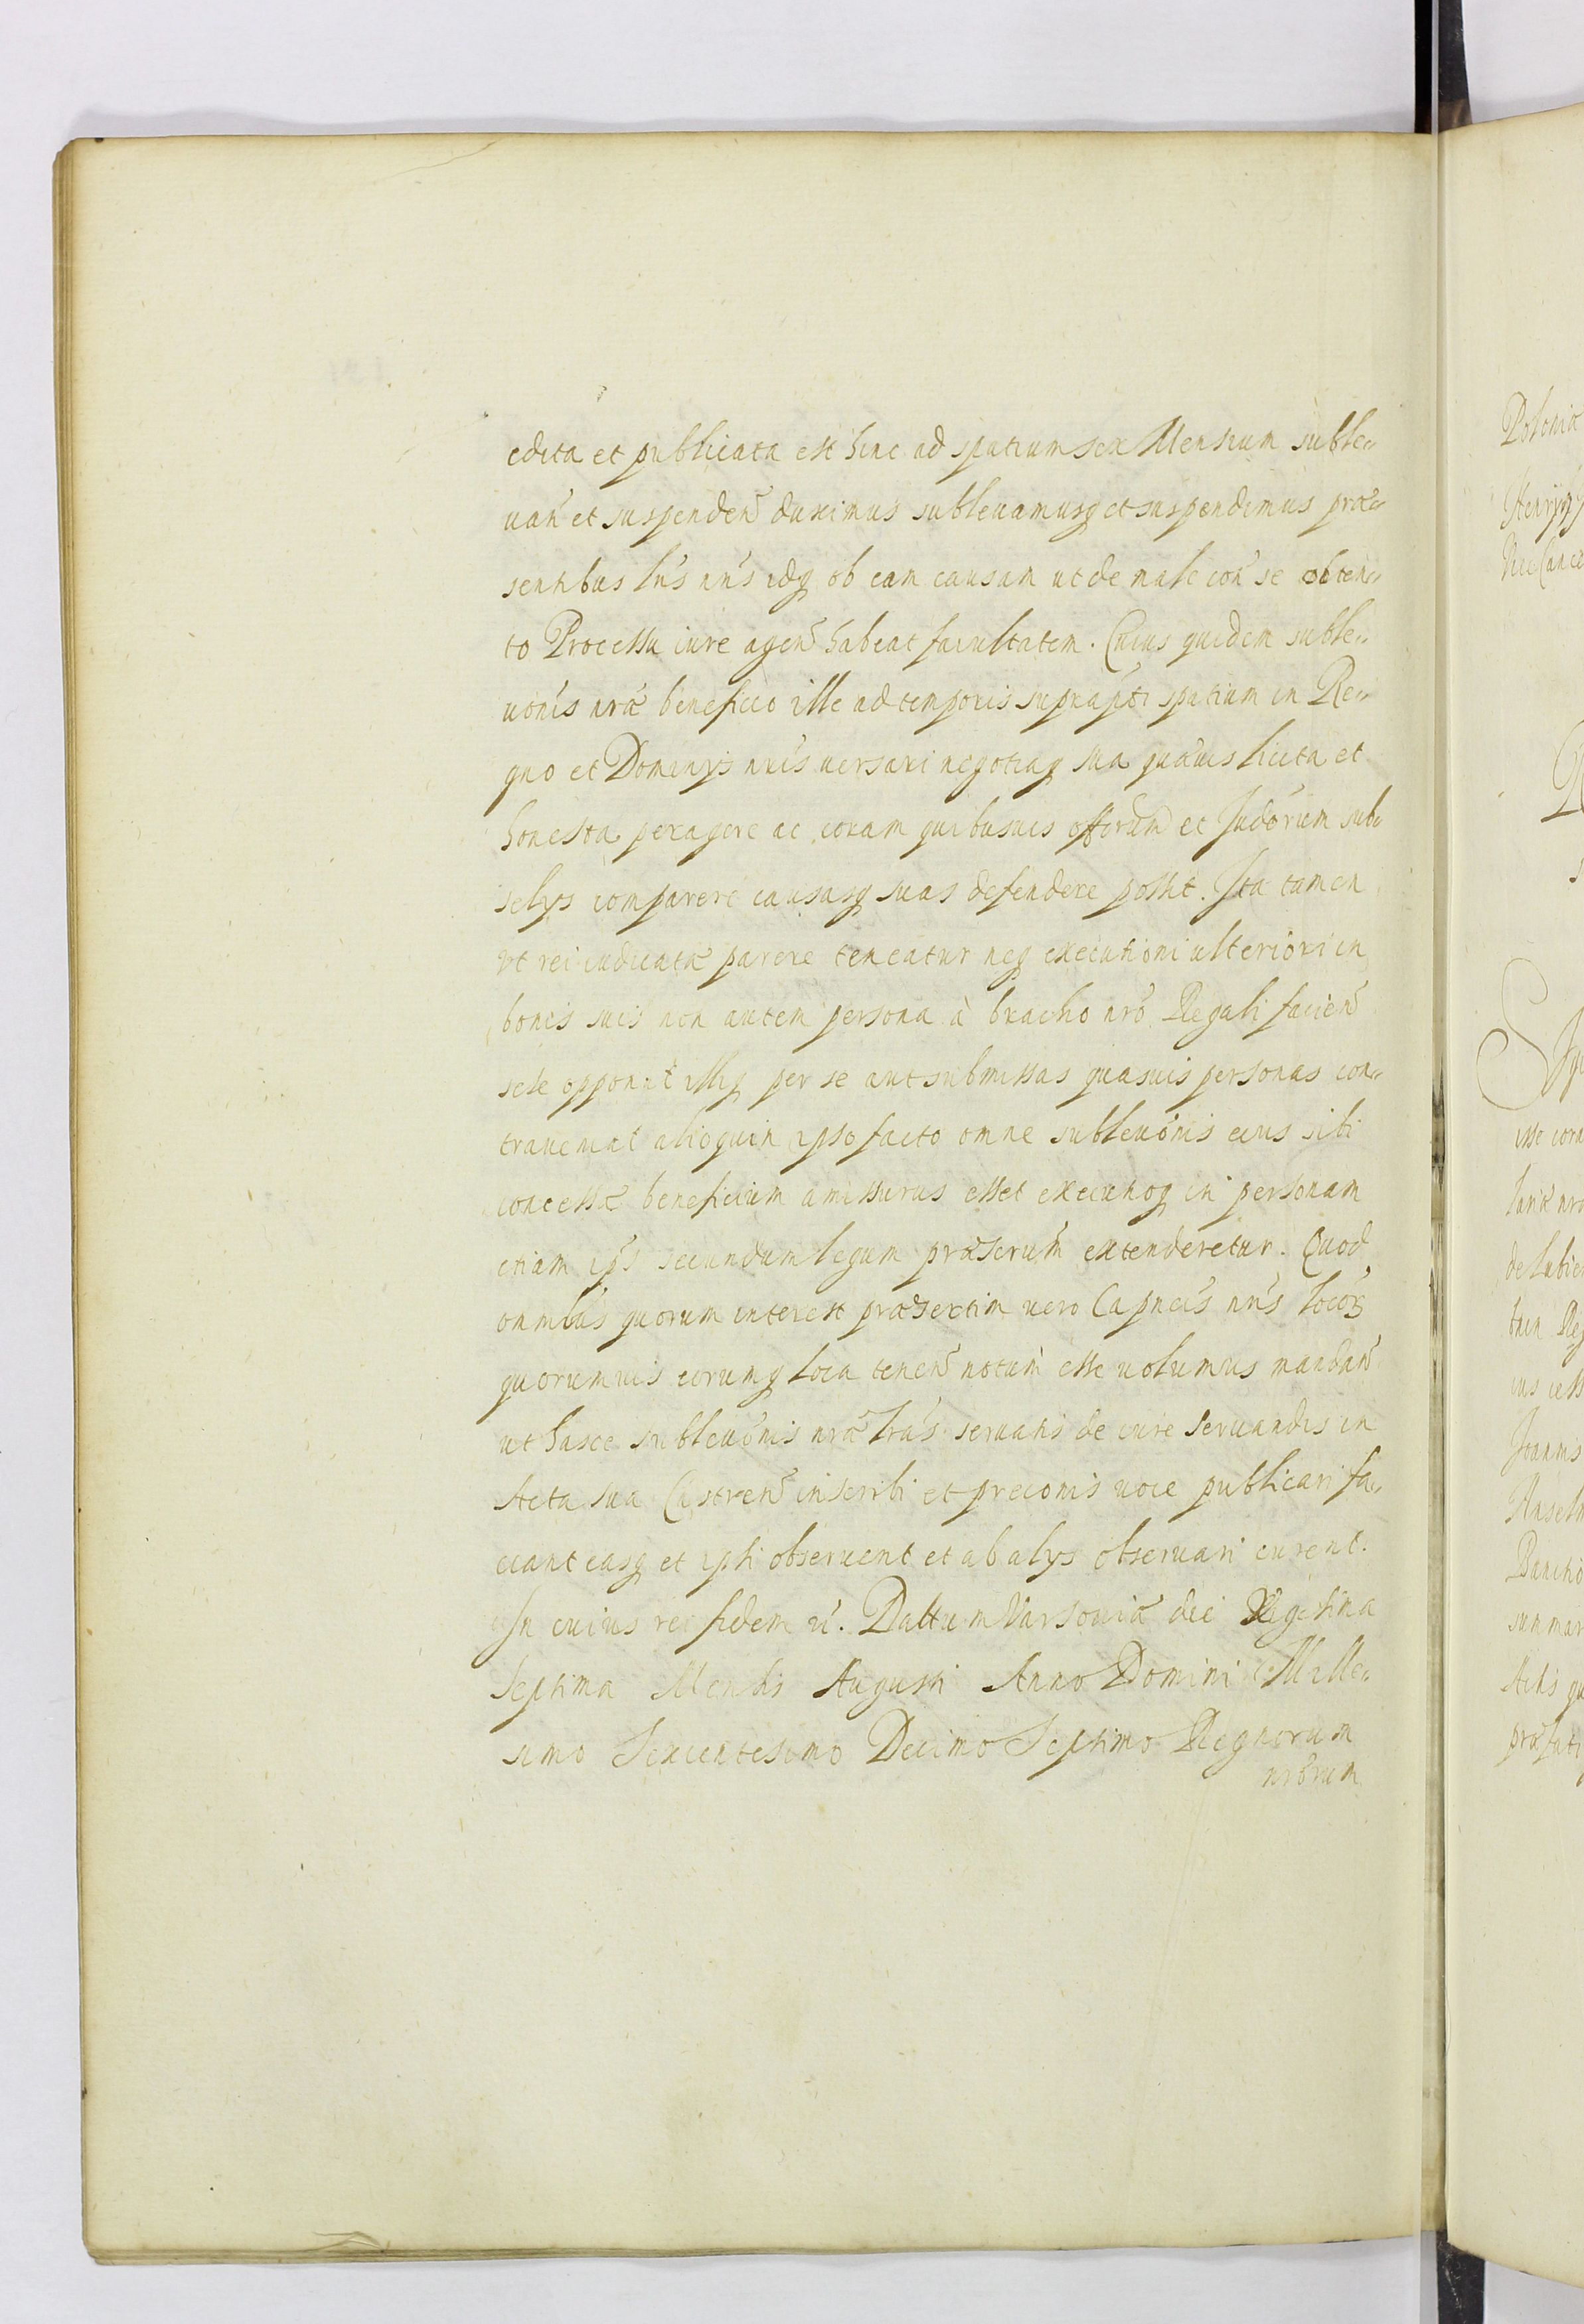 edita et publicata est hinc ad spatium sex Mensium suble„
uan̄ et suspenden̄ duximus subleuamusq et suspendimus præ„
sentibus lr̄is nr̄is idq ob eam causam ut de male con̄ se obten„
to Processu iure agen̄ habeat facultatem. Cuius quidem suble„
uōnis nrǣ beneficio ille ad temporis supra spatium in Re„
gno et Dominys nr̄is uersari negotiaq sua quæuis licita et
honesta peragere ac coram quibusuis offōrum et Judōrum sub„
selys comparere causasq suas defendere possit. Ita tamen
vt rei iudicatæ parere teneatur neq executioni ulteriori in
bonis suis non autem persona à brachio nrō Regali facien̄
sese opponat illiq per se aut submissas quasuis personas con„
traueniat alioquin ipso facto omne subleuōnis eius sibi
concessæ beneficium amissurus esset executioq in personam
etiam ip̄s secundum legum præscrum̄ extenderetur. Quod
omnibus quorum interest præsertim uero Capneis nr̄is locor̄
quorumuis eorumq loca tenen̄ notum esse uolumus mandan̄
ut hasce subleuōnis nrǣ lrā̄s seruatis de iure seruandis in
Acta sua Castren̄ inscribi et preconis uoce publicari fa„
ciant easq et ipsi obseruent et ab alys obseruari curent.
In cuius rei fidem Dattum Varsouiæ die Vigesima
Septima Mensis Augusti Anno Domini Mille„
simo Sexcentesimo Decimo Septimo Regnorum
nrōrum
Poloniæ
de Lubie
Joannis
Anselm
Actis qu
præfati